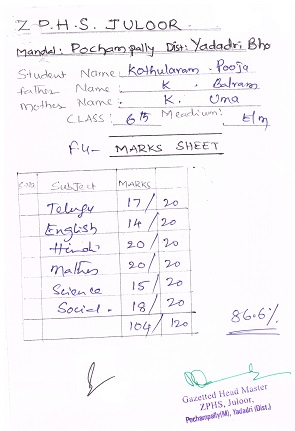 Z P.H.S. JULOOR
Mandal: Pochampally Dist: Yadadri Bho
Student Name Kothularam. Pooja
father Name: K. Balram
Mother Name: K. Uma
CLASS: 6th Meadium: E/m
FA- MARKS SHEET
S.No Subject MARKS
Telugu 17/20
English 14/20
Hindi 20/20
Mathes 20/20
Science 15/20
Social. 18/20
104/120
86.6%
Gazetted Head Master
ZPHS, Juloor,
Pochampally(M), Yadadri (Dist.)